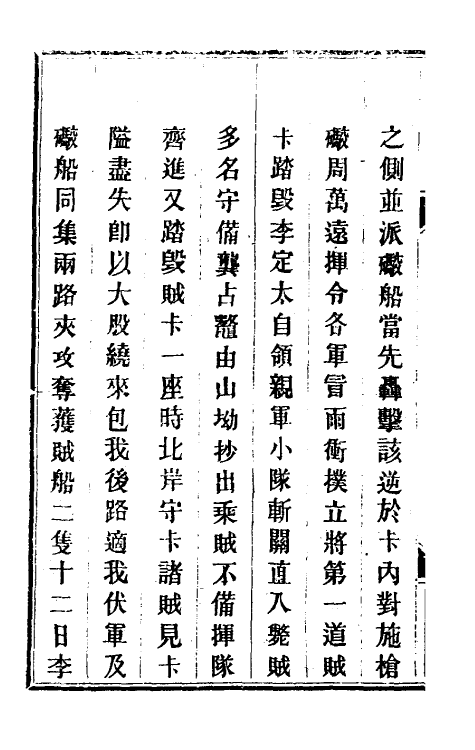 之側並派礮船當先轟擊該逆於卡內對施槍
礮周萬遠揮令各軍冒雨衝撲立將第一道賊
卡踏毀李定太自領親軍小隊斬關直入斃賊
多名守備龔占鼇由山坳抄出乘賊不備揮隊
齊進又踏毀賊卡一座時北岸守卡諸賊見卡
隘盡失卽以大股繞來包我後路適我伏軍及
礮船同集兩路夾攻奪獲賊船二隻十二日李